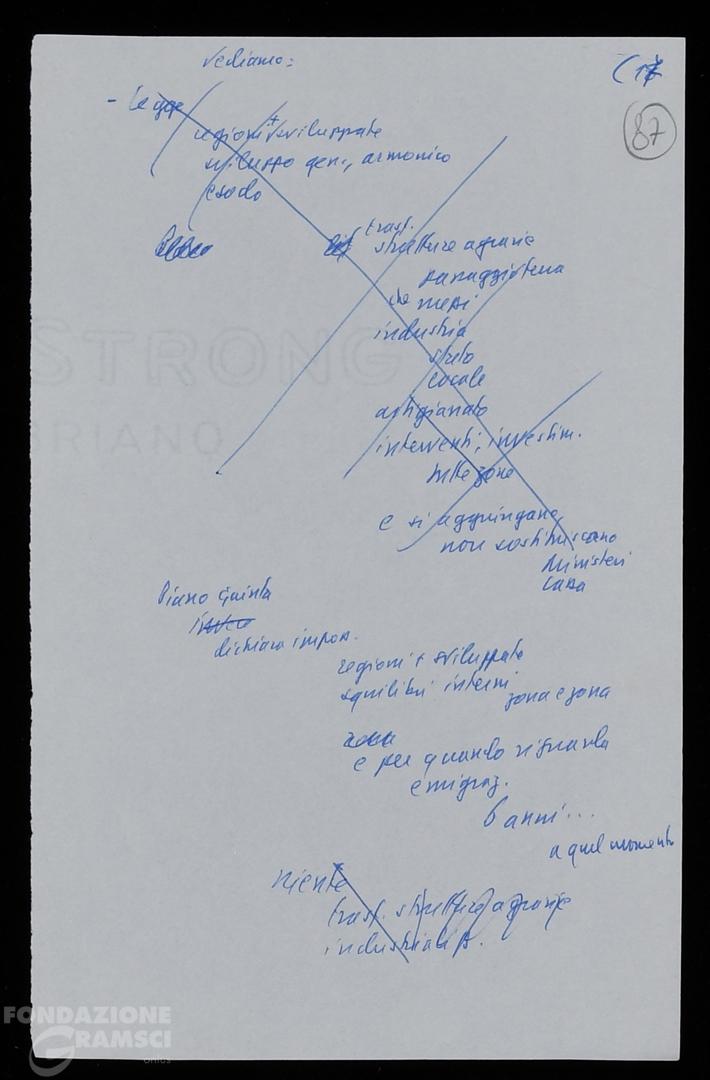 vediamo:
(17
87
- legge
regioni + sviluppate
sviluppo gen., armonico
esodo
trasf.
strutture agrarie
che mezzi
industria
stato
locale
artigianato
interventi, investim.
tutte zone
e si aggiungano
non sostituiscano
Ministeri
Cassa
STRONG
BRIANO
Piano Giunta
dichiara imposs.
regioni + sviluppate
squilibri interni
zona e zona
e per quando riguarda
emigraz.
6 anni...
a quel momento
niente
trasf. strutture agrarie
industrializ.
FONDAZIONE
GRAMSCI
onlus